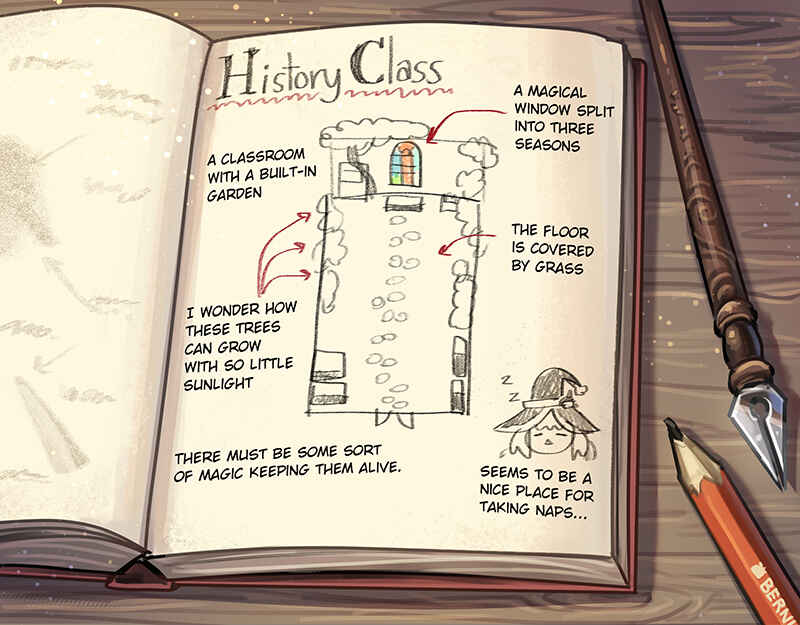 History Class
A MAGICAL
WINDOW SPLIT
INTO THREE
SEASONS
A CLASSROOM
WITH A BUILT-IN
GARDEN
THE FLOOR
IS COVERED
BY GRASS
I WONDER HOW
THESE TREES
CAN GROW
WITH SO LITTLE
SUNLIGHT
THERE MUST BE SOME SORT
OF MAGIC KEEPING THEM ALIVE.
Z
Z
SEEMS TO BE A
NICE PLACE FOR
TAKING NAPS...
BERNI